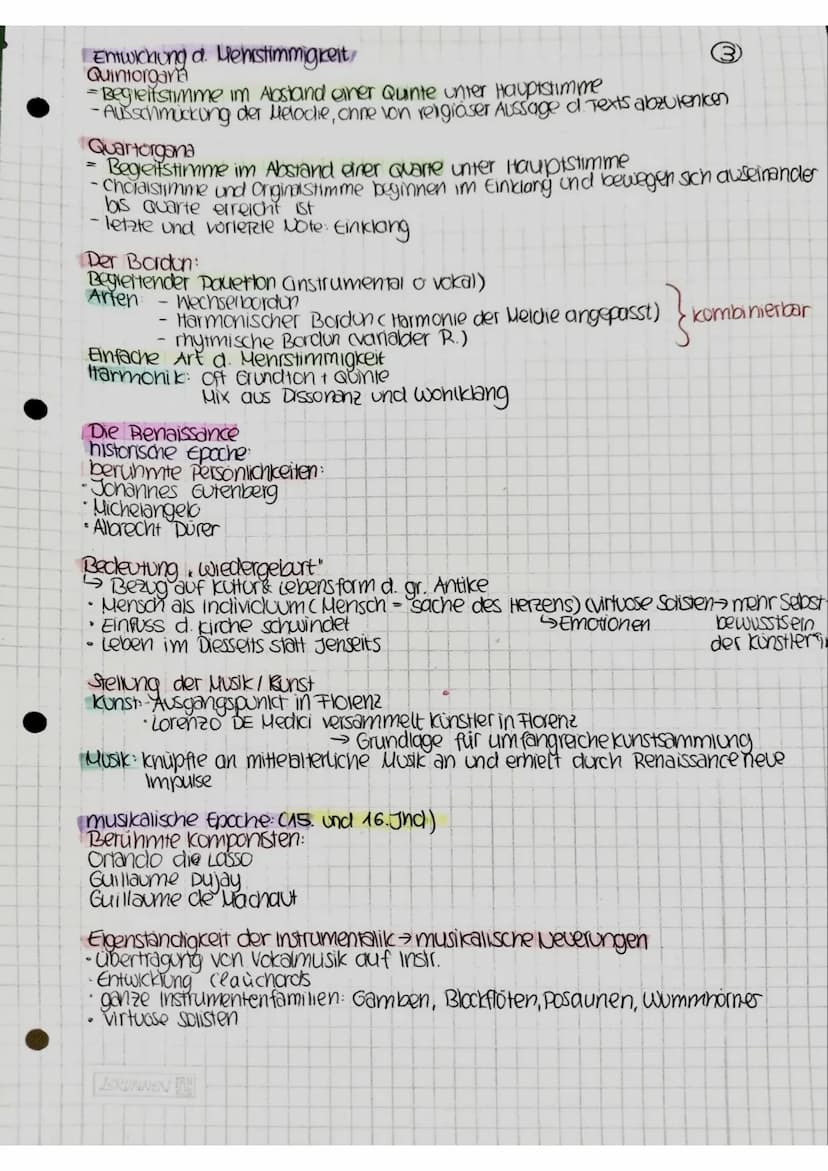 Entwicklung d. Mehrstimmigkeit
3
Quintorgana
= Begleitstimme im Abstand einer Quinte unter Hauptstimme
- Ausschmückung der Melodie, ohne von religiöser Aussage d. Texts abzulenken
Quartorgana
= Begleitstimme im Abstand einer Quarte unter Hauptstimme
- Choralstimme und Orginalstimme beginnen im Einklang und bewegen sich auseinander
bis Quarte erreicht ist
- letzte und vorletzte Note: Einklang
Der Bordun:
Begleitender Dauerton (instrumental o vokal)
Arten: - Wechselbordun
- Harmonischer Bordun (Harmonie der Melodie angepasst)
- rhytmische Bordun (variabler R.)
kombinierbar
Einfache Art d. Mehrstimmigkeit
Harmonik: oft Grundton + Quinte
Mix aus Dissonanz und Wohlklang
Die Renaissance
historische Epoche:
berühmte Persönlichkeiten:
• Johannes Gutenberg
• Michelangelo
• Albrecht Dürer
Bedeutung „Wiedergeburt"
↳ Bezug auf Kultur & Lebensform d. gr. Antike
• Mensch als Individuum (Mensch = Sache des Herzens) (virtuose Solisten → mehr Selbst
• Einfluss d. Kirche schwindet ↳ Emotionen bewusstsein
• Leben im Diesseits statt Jenseits der Künstler
Stellung der Musik / Kunst
Kunst: Ausgangspunkt in Florenz
• Lorenzo DE Medici versammelt Künstler in Florenz
→ Grundlage für umfangreiche Kunstsammlung
Musik: Knüpfte an mittelalterliche Musik an und erhielt durch Renaissance neue
Impulse
musikalische Epoche: (15. und 16. Jhd)
Berühmte Komponisten:
Orlando die Lasso
Guillaume Dujay
Guillaume de Machaut
Eigenständigkeit der Instrumentalik → musikalische Neuerungen
• Übertragung von Vokalmusik auf Instr.
• Entwicklung
• ganze Instrumentenfamilien: Gamben, Blockflöten, Posaunen,
• virtuose Solisten
BRUNNEN